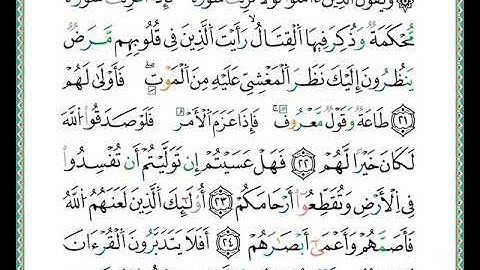 وَيَقُولُ الَّذِينَ ءَامَنُوا لَوْلَا نُزِّلَتْ سُورَةٌ فَإِذَا أُنزِلَتْ سُورَةٌ
مُّحْكَمَةٌ وَذُكِرَ فِيهَا الْقِتَالُ رَأَيْتَ الَّذِينَ فِي قُلُوبِهِم مَّرَضٌ
يَنظُرُونَ إِلَيْكَ نَظَرَ الْمَغْشِيِّ عَلَيْهِ مِنَ الْمَوْتِ فَأَوْلَى لَهُمْ
٢١ طَاعَةٌ وَقَوْلٌ مَّعْرُوفٌ فَإِذَا عَزَمَ الْأَمْرُ فَلَوْ صَدَقُوا اللَّهَ
لَكَانَ خَيْرًا لَّهُمْ ٢٢ فَهَلْ عَسَيْتُمْ إِن تَوَلَّيْتُمْ أَن تُفْسِدُوا
فِي الْأَرْضِ وَتُقَطِّعُوا أَرْحَامَكُمْ ٢٣ أُولَٰئِكَ الَّذِينَ لَعَنَهُمُ اللَّهُ
فَأَصَمَّهُمْ وَأَعْمَىٰ أَبْصَارَهُمْ ٢٤ أَفَلَا يَتَدَبَّرُونَ الْقُرْءَانَ